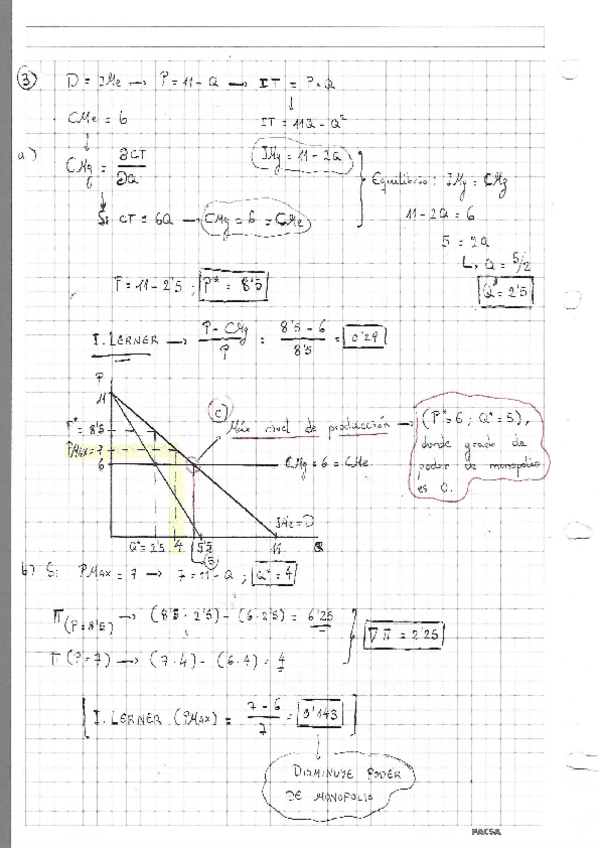 3) D = IMe → P = 11 - Q → IT = P × Q
CMe = 6
IT = 11Q - Q²
a) CMg = ∂CT/∂Q
6
IMg = 11 - 2Q
Equilibrio: IMg = CMg
Si CT = 6Q → CMg = 6 = CMe
11 - 2Q = 6
5 = 2Q
Q = 5/2
Q* = 2'5
P = 11 - 2'5 ; P* = 8'5
I. LERNER → P - CMg / P = 8'5 - 6 / 8'5 = 0'29
P
11
(c)
Máx nivel de producción → (P* = 6 ; Q* = 5),
donde grado de
poder de monopolio
es 0.
P* = 8'5
PMAX = 7
6
CMg = 6 = CMe
IMe = D
Q* = 2'5 4 5'5 11 Q
5
b) Si PMAX = 7 → 7 = 11 - Q ; Q* = 4
π (P = 8'5) → (8'5 · 2'5) - (6 · 2'5) = 6'25
∇π = 2'25
π (P = 7) → (7 · 4) - (6 · 4) = 4
[ I. LERNER (PMAX) = 7 - 6 / 7 = 0'143 ]
DISMINUYE PODER
DE MONOPOLIO
PACSA